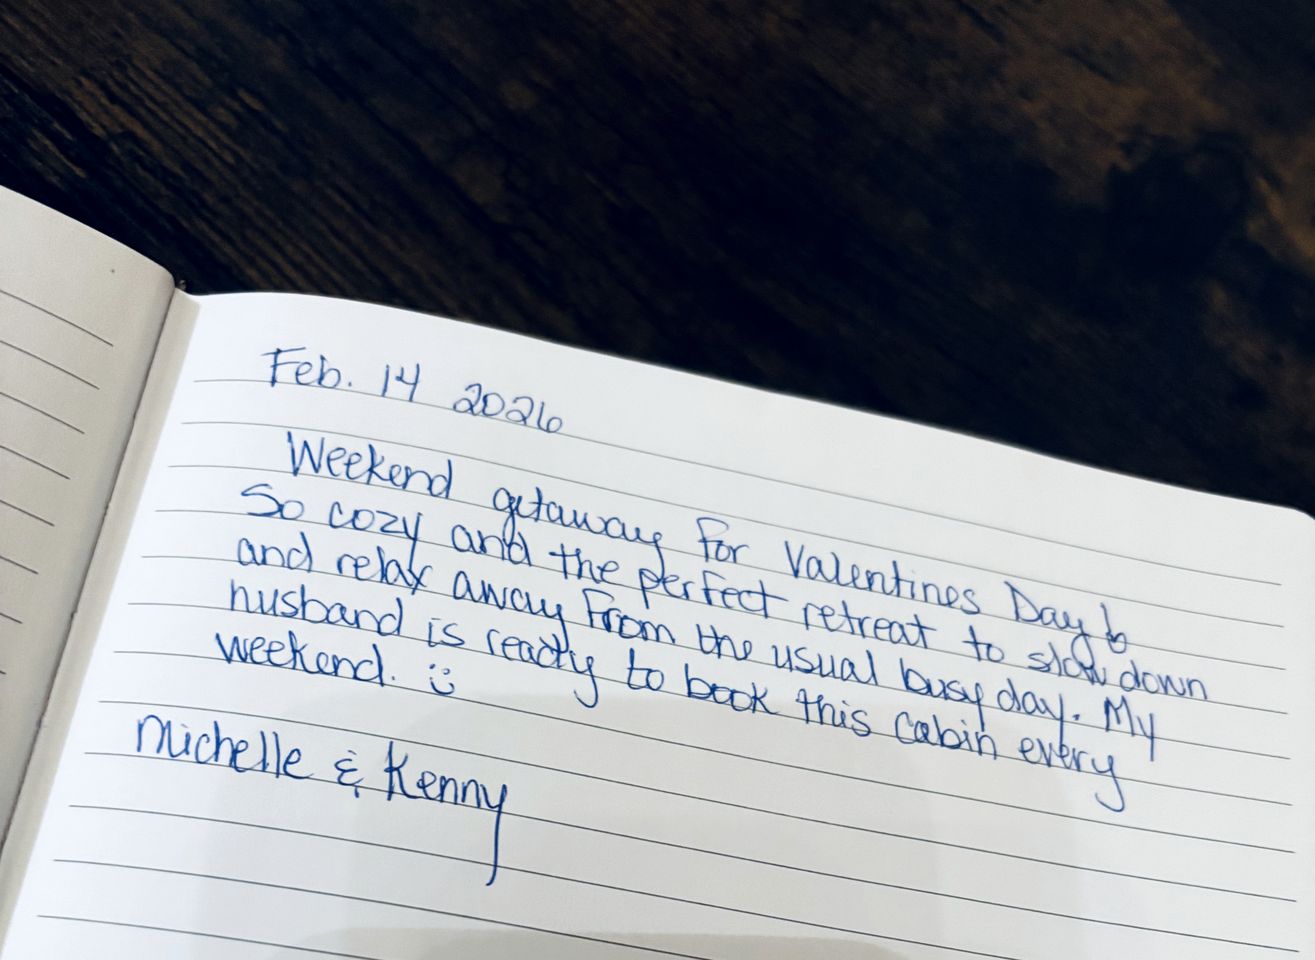 Feb. 14 2026
Weekend getaway for Valentines Day
So cozy and the perfect retreat to slow down
and relax away from the usual busy day. My
husband is ready to book this cabin every
weekend. :)
Michelle & Kenny